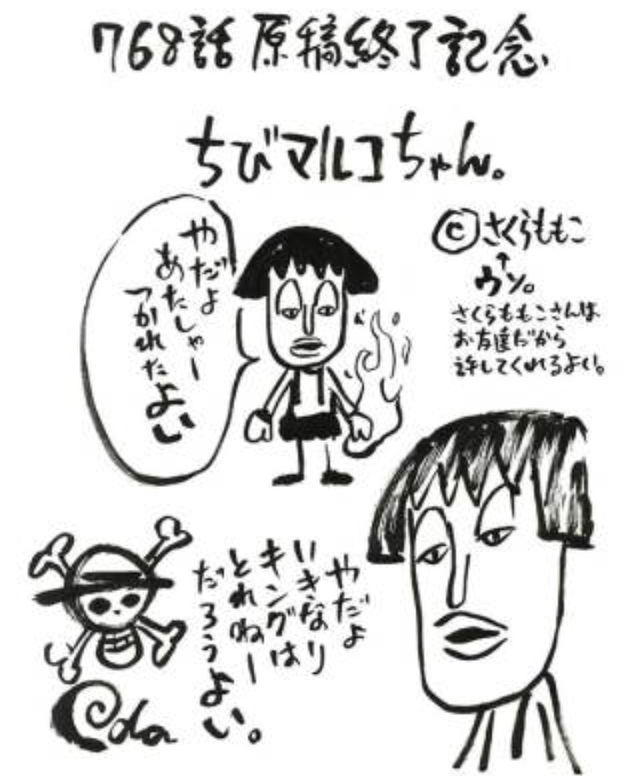 768話原稿終了記念
ちびマルコちゃん。
©さくらももこ
↑
ウソ。
さくらももこさんは
お友達だから
許してくれるよい。
やだよ
あたしゃー
つかれたよい
やだよ
いきなり
キングは
とれねー
だろうよい。
Oda